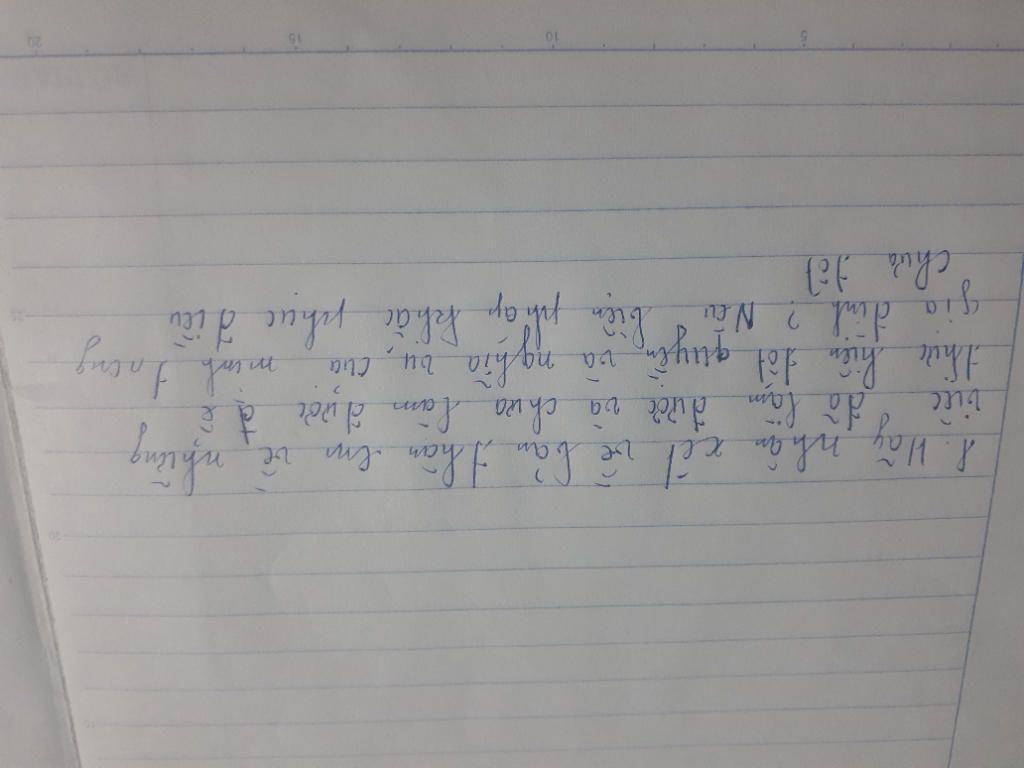 1. Hãy nhận xét về bản thân em về những
việc đã làm được và chưa làm được để
thực hiện tốt quyền và nghĩa vụ của mình trong
gia đình ? Nêu biện pháp khắc phục điều
chưa tốt
5
10
15
20